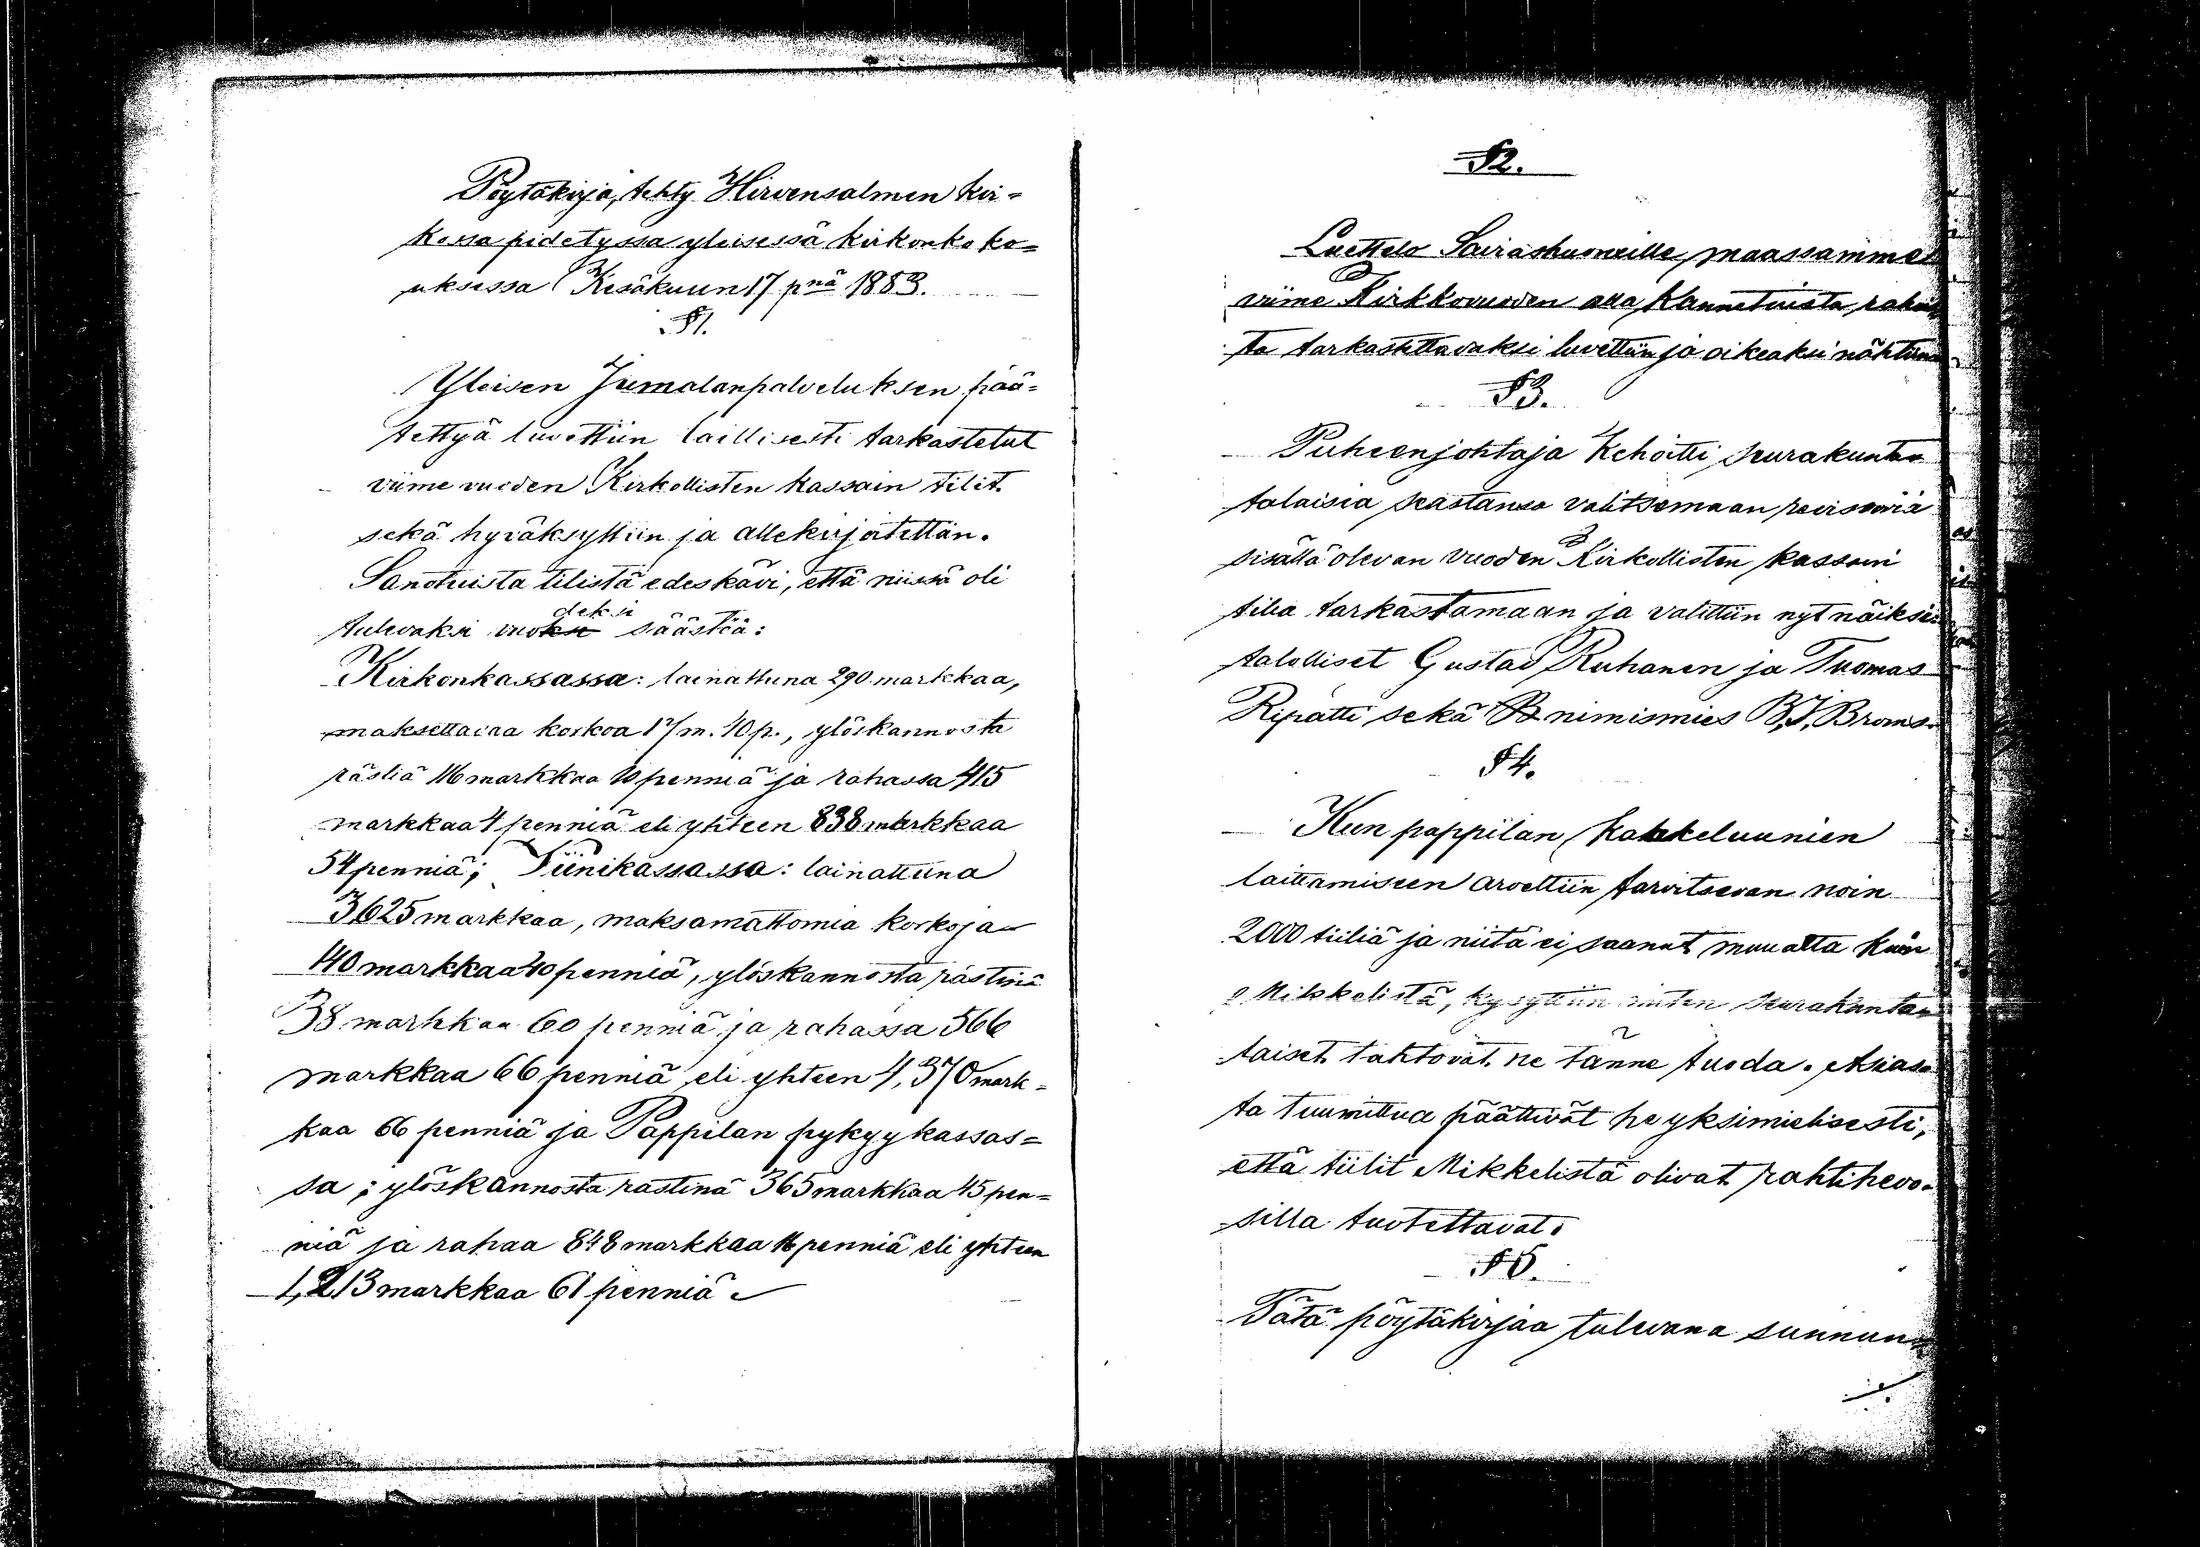 Pöytäkirja, tehty Hirvensalmen kir-
kossa pidetyssä yleisessä kirkonkoko-
uksessa Kesäkuun 17 pnä 1883.
§1.
Yleisen Jumalanpalveluksen pää-
tettyä luvettiin laillisesti tarkastetut
viime vuoden Kirkollisten kassain tilit
sekä hyväksyttiin ja allekirjoitettiin.
Sanotuista tilistä edeskävi, että niissä oli
deksi
tulevaksi vuoksi säästöä:
Kirkonkassassa: lainattuna 290 markkaa,
maksettavaa korkoa 17 m. 40 p., ylöskannosta
rästiä 116 markkaa 10 penniä ja rahassa 415
markkaa 4 penniä eli yhteen 838 markkaa
54 penniä; Viinikassassa: lainattuna
3625 markkaa, maksamattomia korkoja
140 markkaa 40 penniä, ylöskannosta rästinä
38 markkaa 60 penniä ja rahassa 566
markkaa 66 penniä eli yhteen 4,370 mark-
kaa 66 penniä ja Pappilan pykyykassas-
sa; ylöskannosta rästinä 365 markkaa 45 pen-
niä ja rahaa 848 markkaa 16 penniä eli yhteen
1,213 markkaa 61 penniä.
§2.
Luettelo Sairashuoneille, maassamme
viime Kirkkovuoden alla kannetuista rahois-
ta tarkastettavaksi luvettiin ja oikeaksi nähtiin
§3.
Puheenjohtaja Kehoitti seurakunta-
talaisia seastansa valitsemaan revisoria
sisällä olevan vuoden Kirkollisten kassain
tiliä tarkastamaan ja valittiin nyt näiksi
talolliset Gustav Ruhanen ja Tuomas
Ripatti sekä B nimismies B.J. Broms.
§4.
Kun pappilan kakkeluunien
laittamiseen arveltiin tarvitsevan noin
2000 tiiliä ja niitä ei saanut muualta kuin
Mikkelistä, kysyttiin miten seurakunta-
laiset tahtovat ne tänne tuoda. Asias-
ta tuumittua päättivät he yksimielisesti,
että tiilit Mikkelistä olivat rahtihevo-
silla tuotettavat.
§5.
Tätä pöytäkirjaa tulevana sunnun-